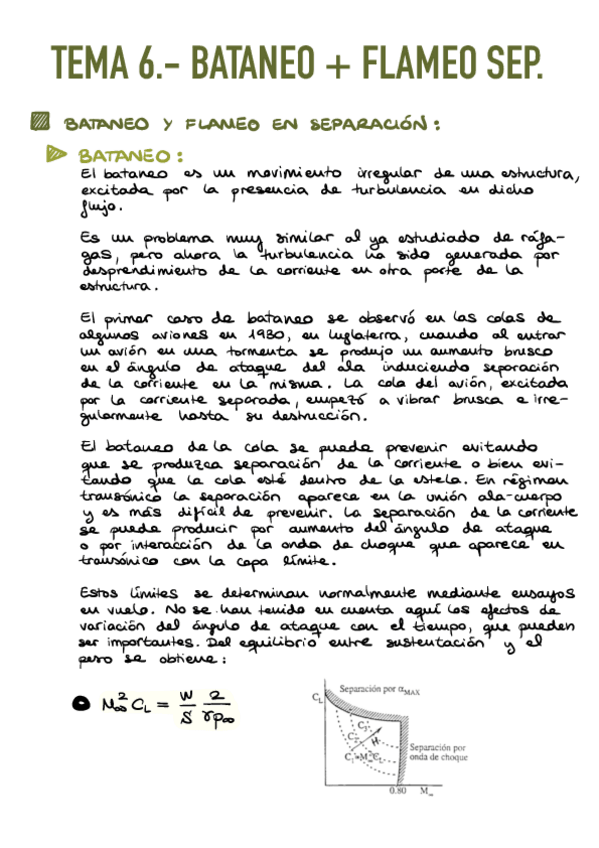 TEMA 6.- BATANEO + FLAMEO SEP.
BATANEO Y FLAMEO EN SEPARACIÓN:
BATANEO:
El bataneo es un movimiento irregular de una estructura,
excitada por la presencia de turbulencia en dicho
flujo.
Es un problema muy similar al ya estudiado de ráfa-
gas, pero ahora la turbulencia ha sido generada por
desprendimiento de la corriente en otra parte de la
estructura.
El primer caso de bataneo se observó en las colas de
algunos aviones en 1930, en Inglaterra, cuando al entrar
un avión en una tormenta se produjo un aumento brusco
en el ángulo de ataque del ala induciendo separación
de la corriente en la misma. La cola del avión, excitada
por la corriente separada, empezó a vibrar brusca e irre-
gularmente hasta su destrucción.
El bataneo de la cola se puede prevenir evitando
que se produzca separación de la corriente o bien evi-
tando que la cola esté dentro de la estela. En régimen
transónico la separación aparece en la unión ala-cuerpo
y es más difícil de prevenir. La separación de la corriente
se puede producir por aumento del ángulo de ataque
o por interacción de la onda de choque que aparece en
transónico con la capa límite.
Estos límites se determinan normalmente mediante ensayos
en vuelo. No se han tenido en cuenta aquí los efectos de
variación del ángulo de ataque con el tiempo, que pueden
ser importantes. Del equilibrio entre sustentación y el
peso se obtiene:
M∞² CL = W/S 2/γp∞
CL
Separación por αMAX
C3
C2
H
C1=M∞²CL
Separación por
onda de choque
0.80 M∞